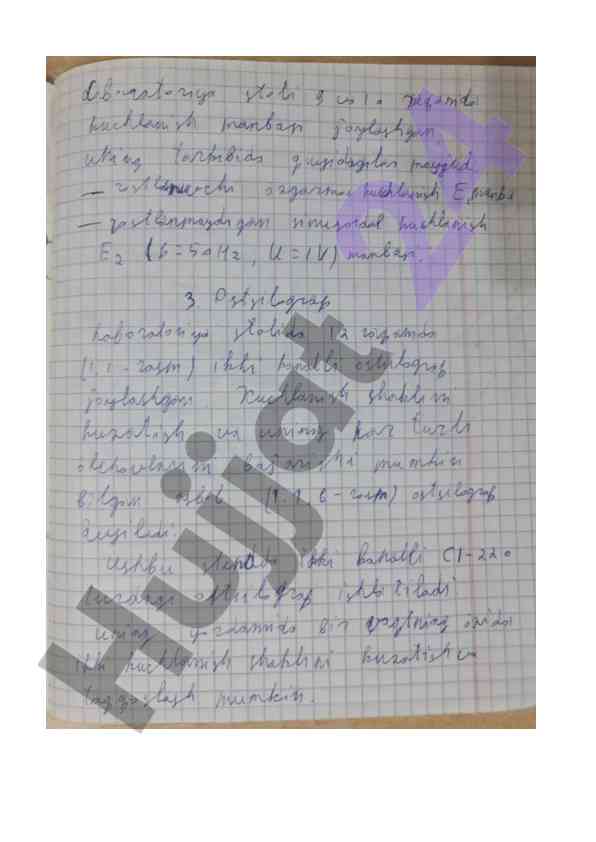 Laboratoriya stoli 9 va 10 raqamda
kuchlanish manbasi joylashgan
uning tarkibida quyidagilar mavjud
— rostlanuvchi ozgarmas kuchlanish E, manba
— rostlanmaydigan sinusoidal kuchlanish
E2 (f=50Hz, U=1V) manbasi.
3. Ostsilograf
Laboratoriya stolida 12 raqamda
(1.1-rasm) ikki kanalli ostsilograf
joylashgan. Kuchlanish shaklini
kuzatish va uning har turli
olchovlarini mumkin
bilgan asbob (1.1.6-rasm) ostsilograf
deyiladi.
Ushbu stendda ikki kanalli C1-220
ostsilograf ishlatiladi
Uning yordamida bir vaqtning ozida
ikki kuchlanish shaklini kuzatish va
taqqoslash mumkin.
Hujjat 24